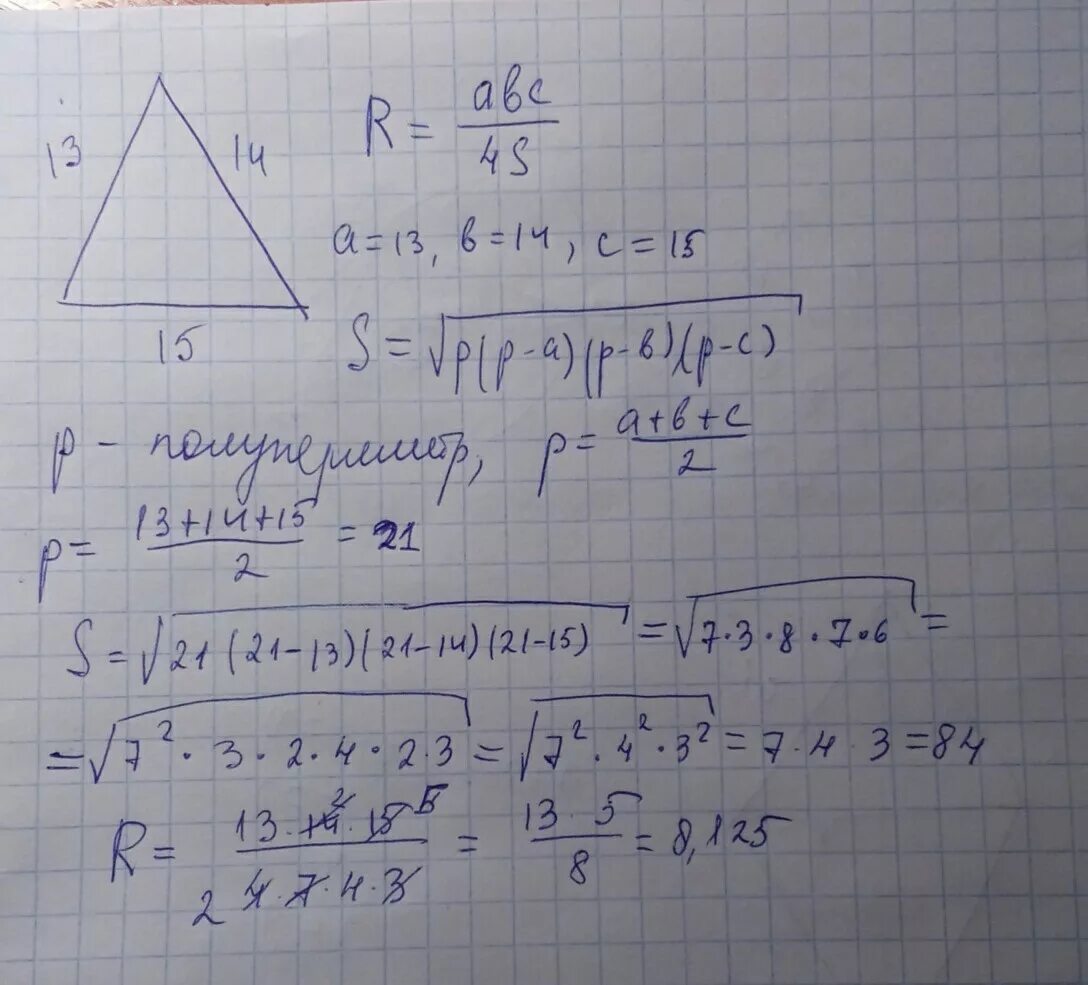 13
14
15
R = abc/4S
a=13, b=14, c=15
S = √(p(p-a)(p-b)(p-c))
p - полупериметр, p = (a+b+c)/2
p = (13+14+15)/2 = 21
S = √(21(21-13)(21-14)(21-15)) = √(7·3·8·7·6) =
= √(7²·3·2·4·2·3) = √(7²·4²·3²) = 7·4·3 = 84
R = (13·14 2·15 5)/(2 4·7·4·3) = (13·5)/8 = 8,125